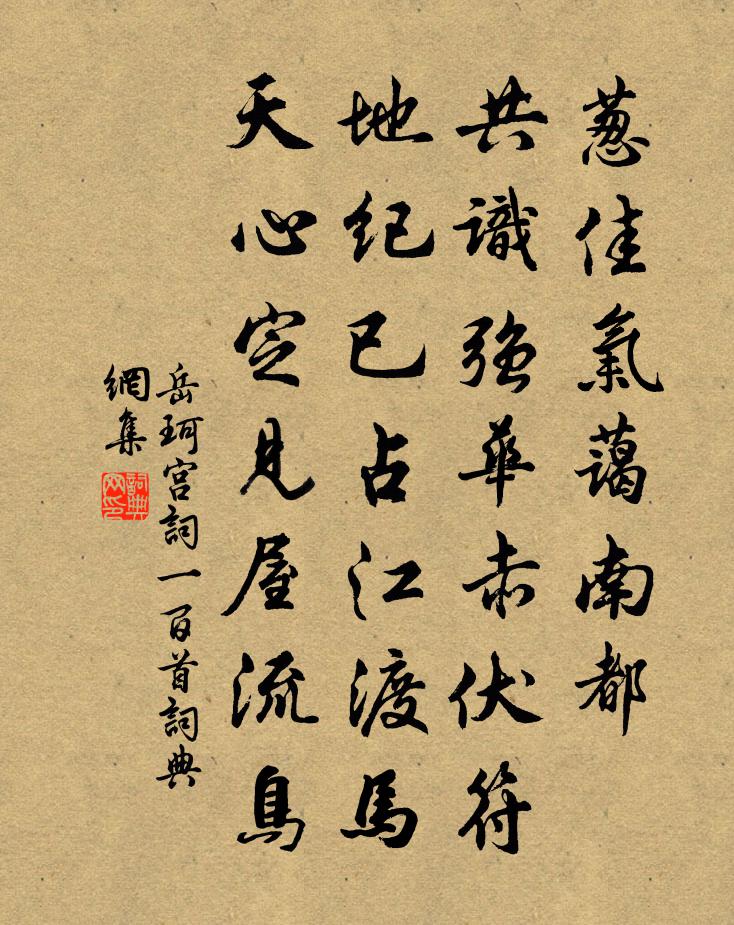 葱佳氣藹南都
共識強華赤伏符
地紀已占江渡馬
天心定見屋流烏
岳珂宮詞一百首詞典
網集
詞典網印